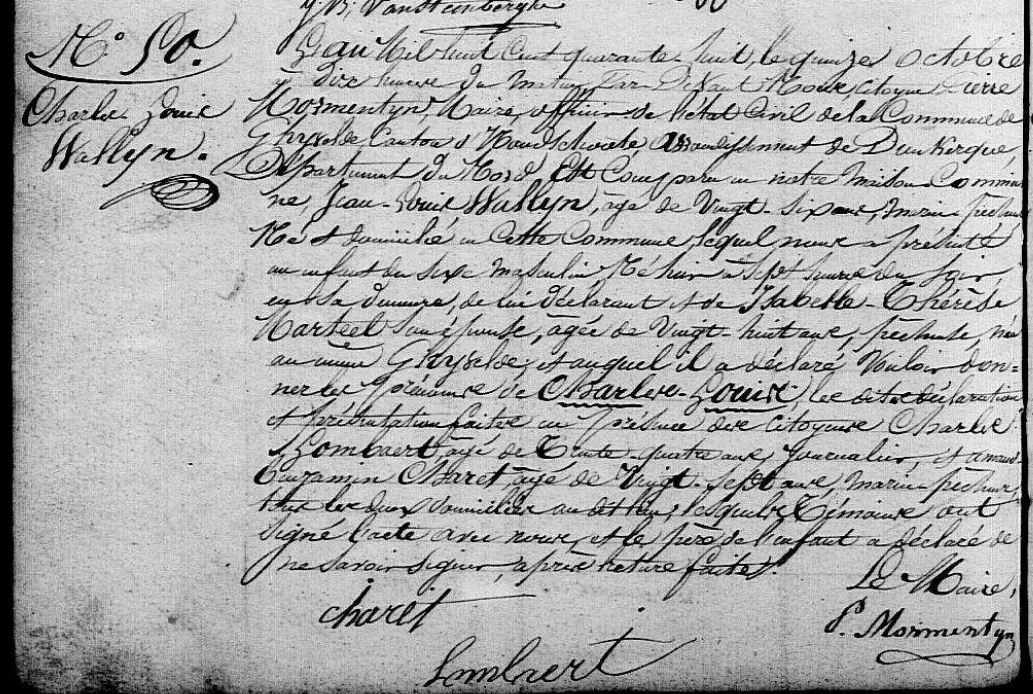 J. B. Vansteenberghe
N.° 50.
Charles Louis
Wallyn.
L'an Mil huit Cent quarante-huit, le quinze octobre
à dix heures du matin, Par Devant Nous, Citoyen Pierre
Mormentyn, Maire, officier de l'état Civil de la Commune de
Ghyvelde, Canton d'Hondschoote, Arrondissement de Dunkerque,
Département du Nord, Est Comparu en notre maison Commu-
ne, Jean-Louis Wallyn, âgé de Vingt-six ans, marin-pêcheur
Né et domicilié en Cette Commune, lequel nous a présenté
un enfant du sexe masculin, Né hier à sept heures du soir
en sa demeure, de lui déclarant et de Isabelle-Thérèse
Marteel son épouse, âgée de Vingt-huit ans, pêcheuse, née
au même Ghyvelde; et auquel il a déclaré Vouloir don=
ner les prénoms de Charles-Louis; les dites déclaration
et présentation faites en présence des Citoyens Charles
Lombaert, âgé de Trente-quatre ans, Journalier, et
Benjamin Charet, âgé de Vingt-sept ans, marin-pêcheur,
tous les deux domiciliés au dit lieu; lesquels Témoins ont
signé l'acte avec nous, et le père de l'enfant a déclaré de
ne savoir signer, après lecture faite.
Le Maire,
Charet
P. Mormentyn
Lombaert